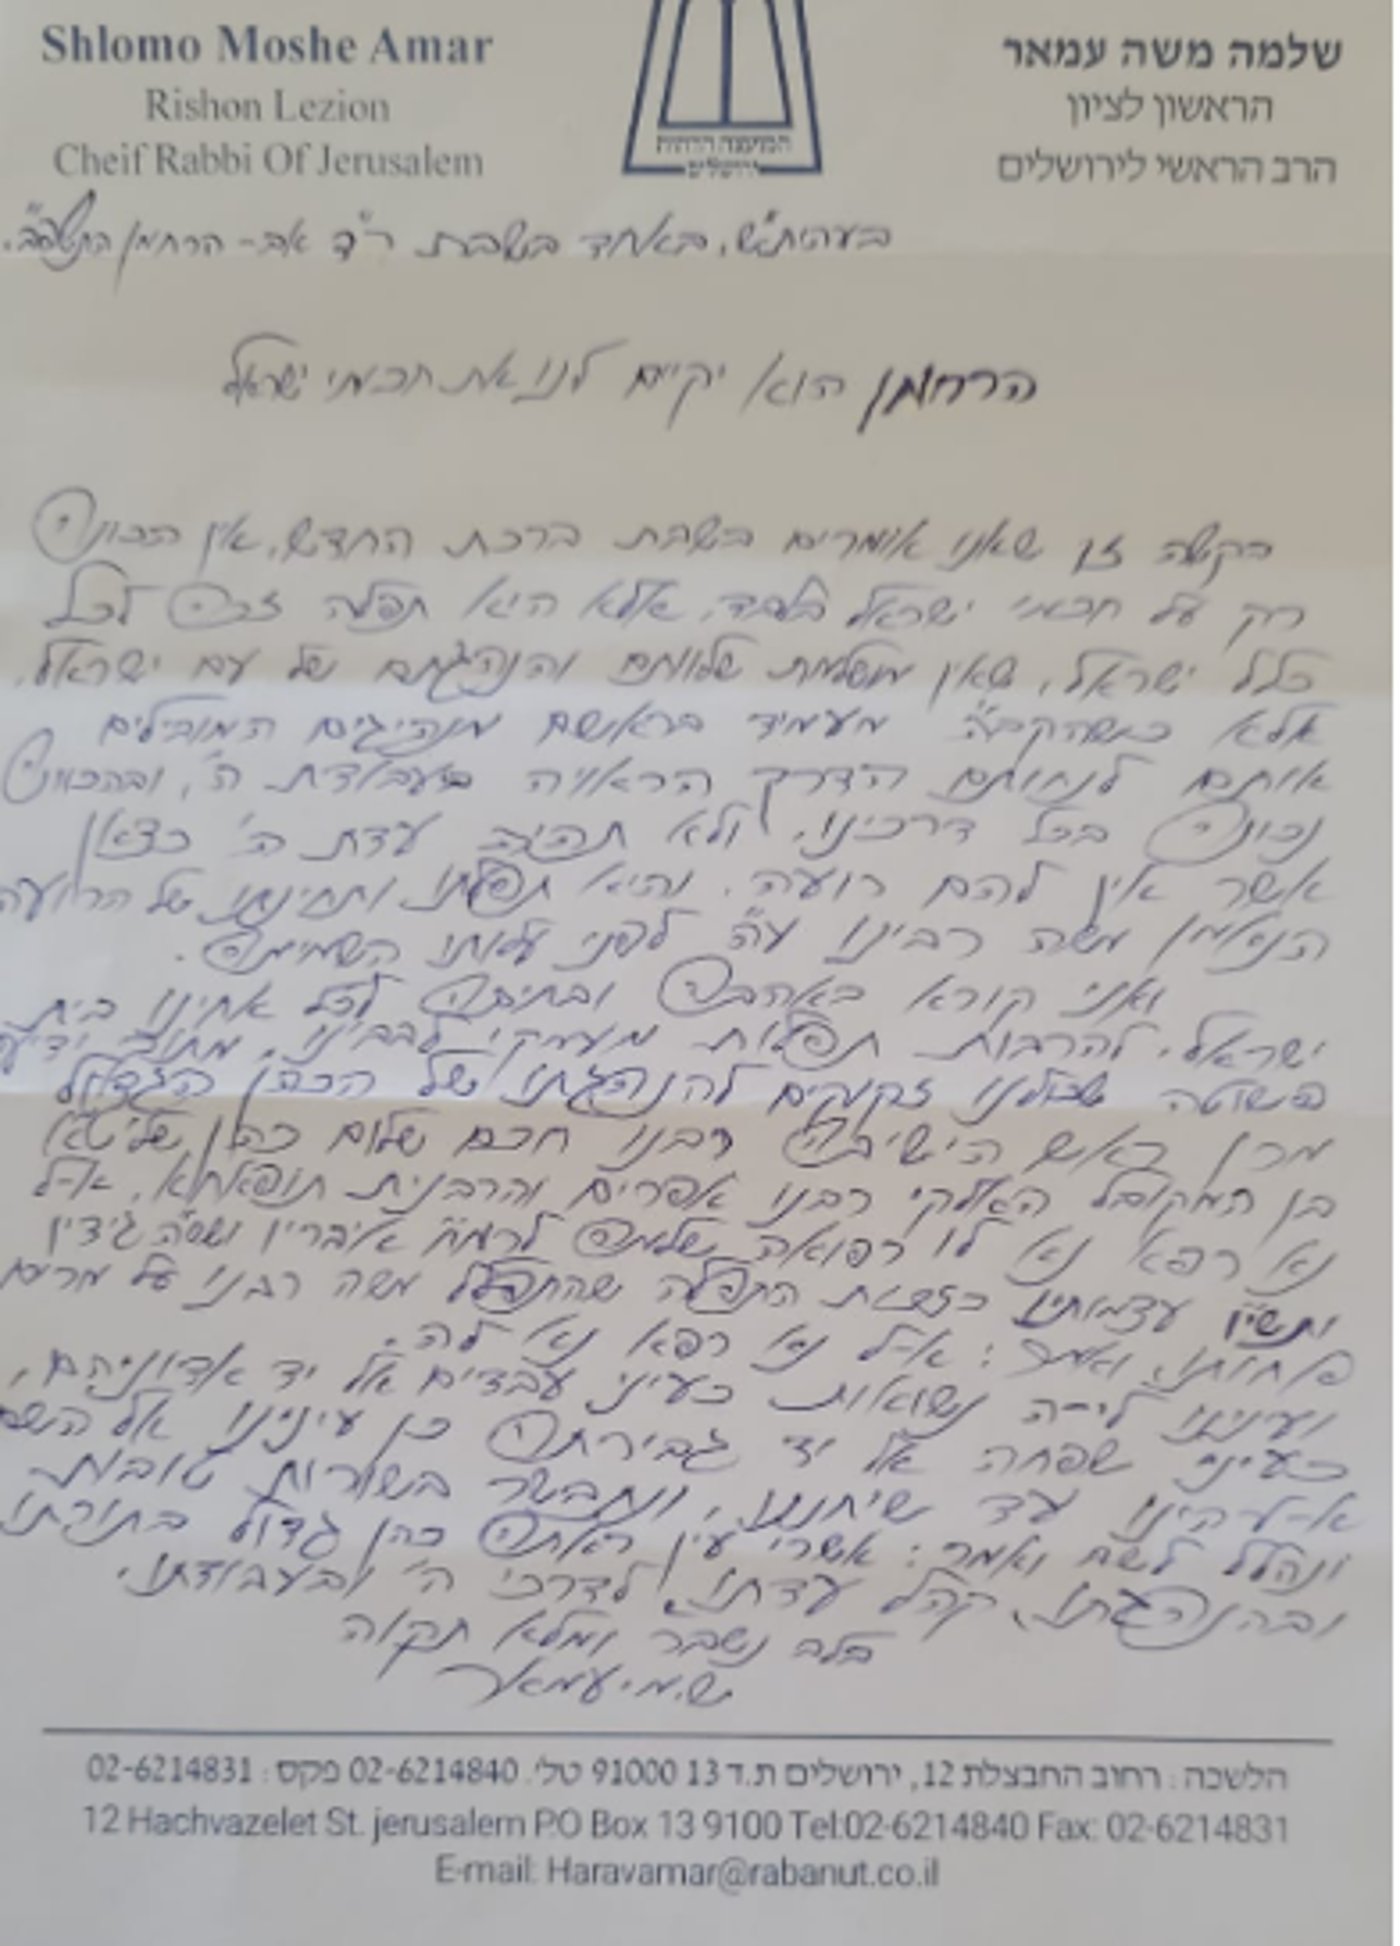 Shlomo Moshe Amar
Rishon Lezion
Cheif Rabbi Of Jerusalem
שלמה משה עמאר
הראשון לציון
הרב הראשי לירושלים
המועצה הדתית
ירושלים
בעהית"ש, באחד בשבת ר"ד אב - הרחמן
הרחמן הוא יקיים לנו את חכמי ישראל
בקשה זו שאנו אומרים בשבת ברכת החדש, אין הכונה
רק על חכמי ישראל בלבד, אלא היא תפלה זכה לכל
כלל ישראל, שאין מושלמת שלוותם והנהגתם של עם ישראל,
אלא כשהקב"ה מעמיד בראשם מנהיגים המובילים
אותם לנחותם הדרך הראויה בעבודת ה', ובהכוונה
נכונה בכל דרכינו, ולא תהיה עדת ה' כצאן
אשר אין להם רועה. והיא תפלתו ותחינתו של הרועה
הנאמן משה רבינו ע"ה לפני עלותו השמימה.
ואני קורא באהבה ובחיבה לכל אחינו בית
ישראל, להרבות תפלות מעמקי לבבינו, מתוך ידיעה
פשוטה שכולנו זקוקים להנהגתו של הכהן הגדול
מרן ראש הישיבה רבנו חכם שלום כהן שליט"א
בן המקובל האלקי רבנו אפרים והרבנית תופאחא, א-ל
נא רפא נא לו רפואה שלמה לרמ"ח איבריו ושס"ה גידיו
עצמותיו כזכות התפלה שהתפלל משה רבנו על מרים
אחותו, ואמר: א-ל נא רפא נא לה.
ועינינו לי-ה נשואות כעיני עבדים אל יד אדוניהם,
כעיני שפחה אל יד גבירתה כן עינינו אל השם
א-ל-קינו עד שיחננו, ונתבשר בשורות טובות
ונהלל לשם ואמר: אשרי עין ראתה כהן גדול בתורתו
ובהנהגתו, קהל עדתו, לדרכי ה' ובעבודתו.
בלב נשבר ומלא תקוה
ש.מ. עמאר
הלשכה: רחוב החבצלת 12, ירושלים ת.ד 13 91000 טל': 02-6214840 פקס: 02-6214831
12 Hachvazelet St. jerusalem P.O Box 13 9100 Tel:02-6214840 Fax: 02-6214831
E-mail: Haravamar@rabanut.co.il